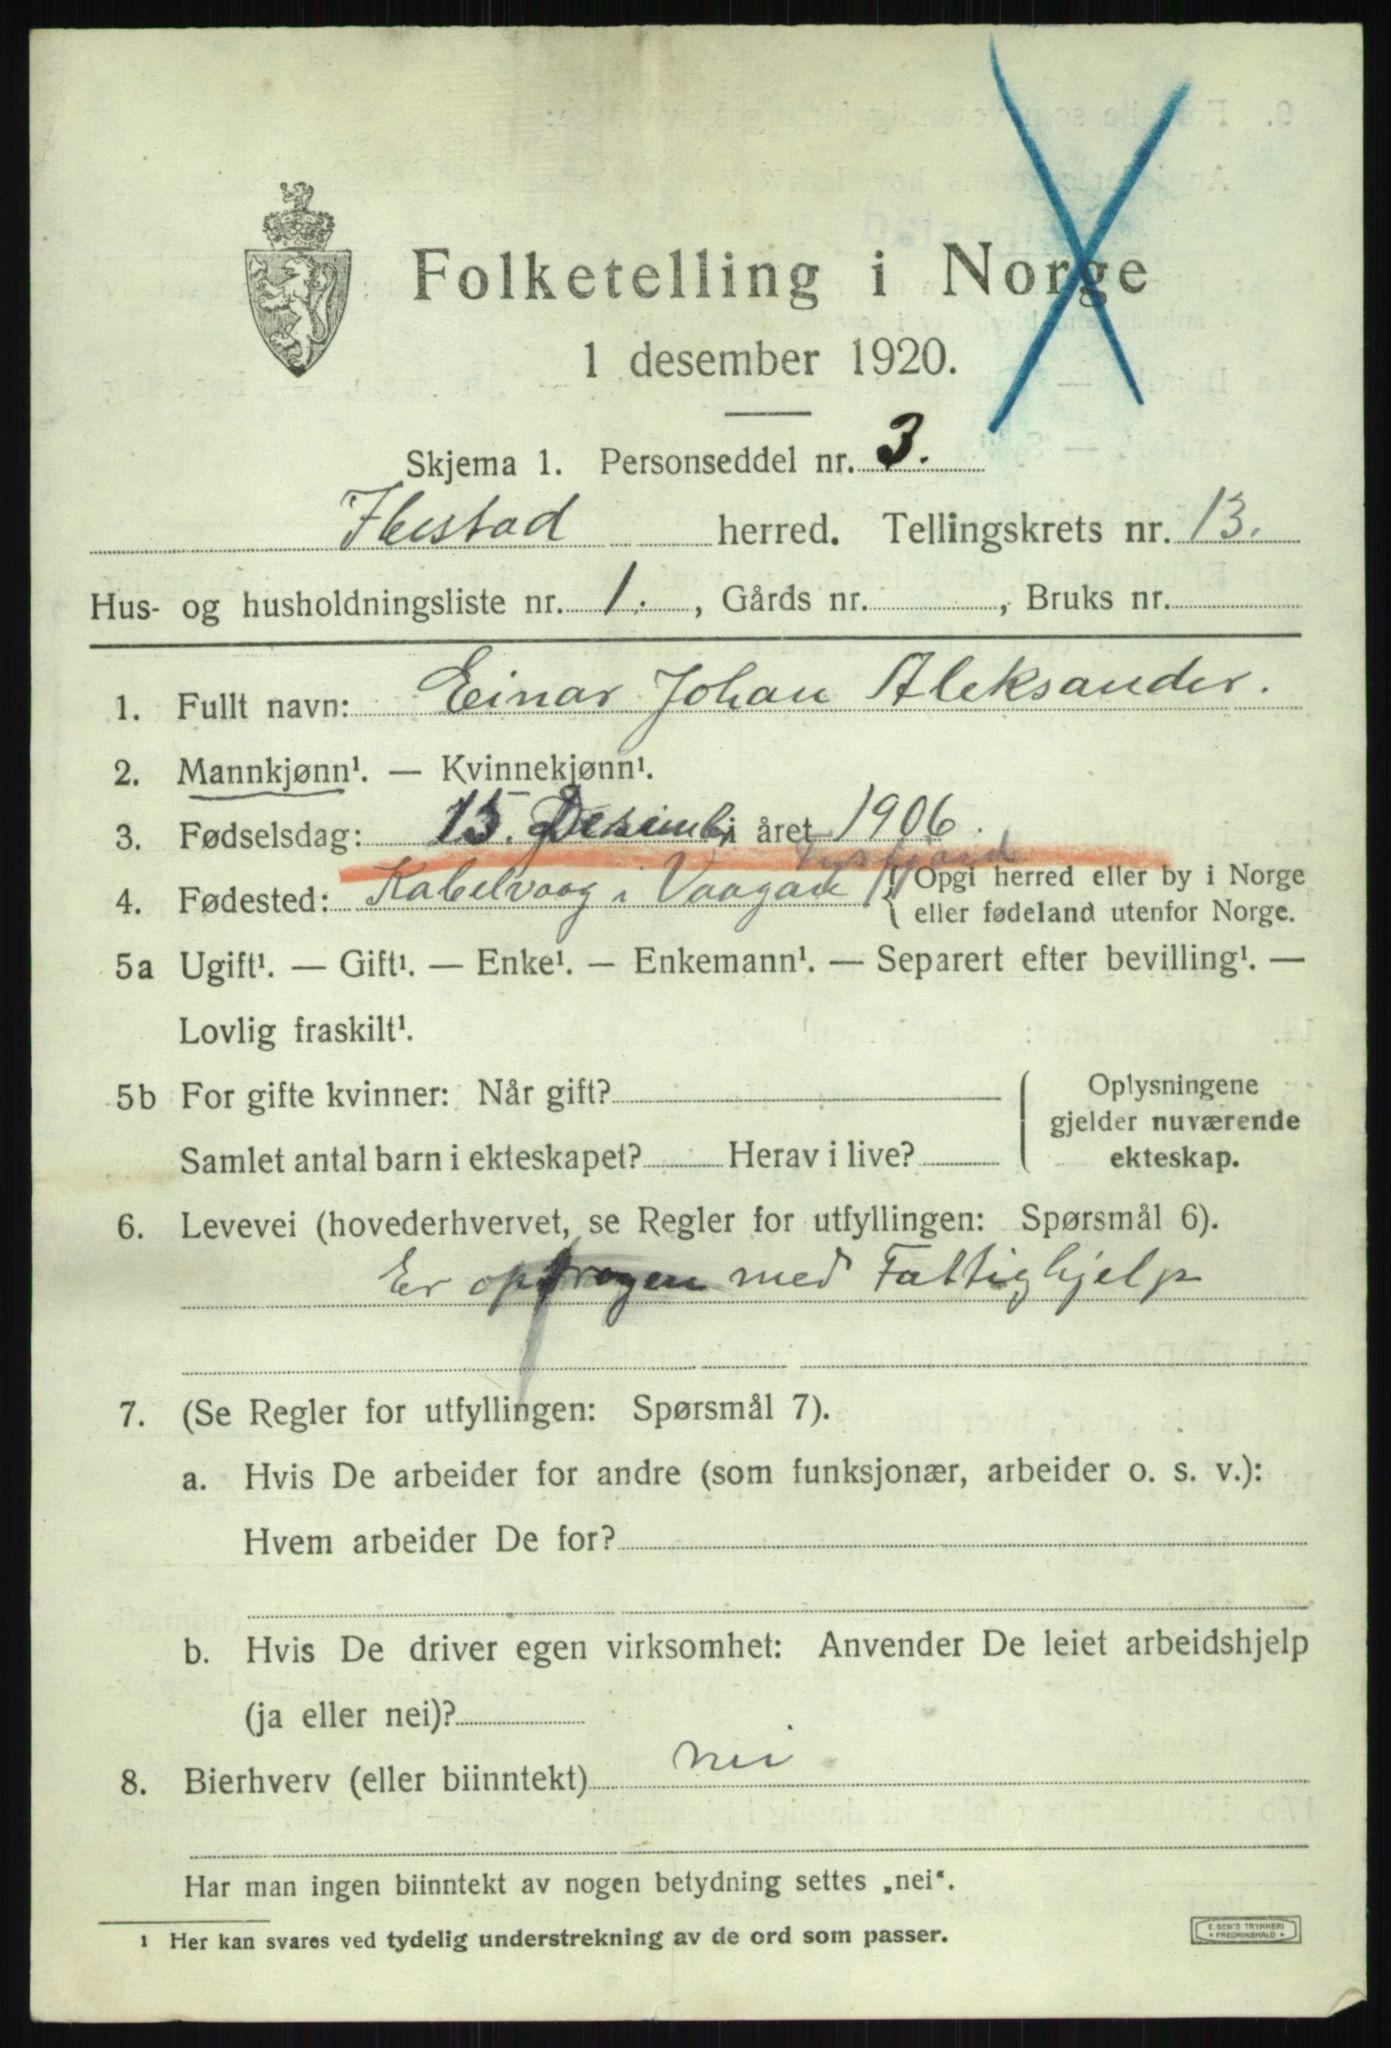 Folketelling i Norge
1 desember 1920.
Skjema 1. Personseddel nr. 3.
Ibestad herred. Tellingskrets nr. 13.
Hus- og husholdningsliste nr. 1. , Gårds nr. , Bruks nr.
1. Fullt navn: Einar Johan Aleksander.
2. Mannkjønn¹. — Kvinnekjønn¹.
3. Fødselsdag: 15. Desemb i året 1906.
Tysfjord
4. Fødested: Kabelvaag i Vaagan { Opgi herred eller by i Norge
eller fødeland utenfor Norge.
5a Ugift¹. — Gift¹. — Enke¹. — Enkemann¹. — Separert efter bevilling¹. —
Lovlig fraskilt¹.
5b For gifte kvinner: Når gift? { Oplysningene
gjelder nuværende
Samlet antal barn i ekteskapet? Herav i live? ekteskap.
6. Levevei (hovederhvervet, se Regler for utfyllingen: Spørsmål 6).
Er med Fattighjelp
7. (Se Regler for utfyllingen: Spørsmål 7).
a. Hvis De arbeider for andre (som funksjonær, arbeider o. s. v.):
Hvem arbeider De for?
b. Hvis De driver egen virksomhet: Anvender De leiet arbeidshjelp
(ja eller nei)?
8. Bierhverv (eller biinntekt) nei
Har man ingen biinntekt av nogen betydning settes „nei“.
¹ Her kan svares ved tydelig understrekning av de ord som passer.
E. SEM'S TRYKKERI
* FREDRIKSHALD *